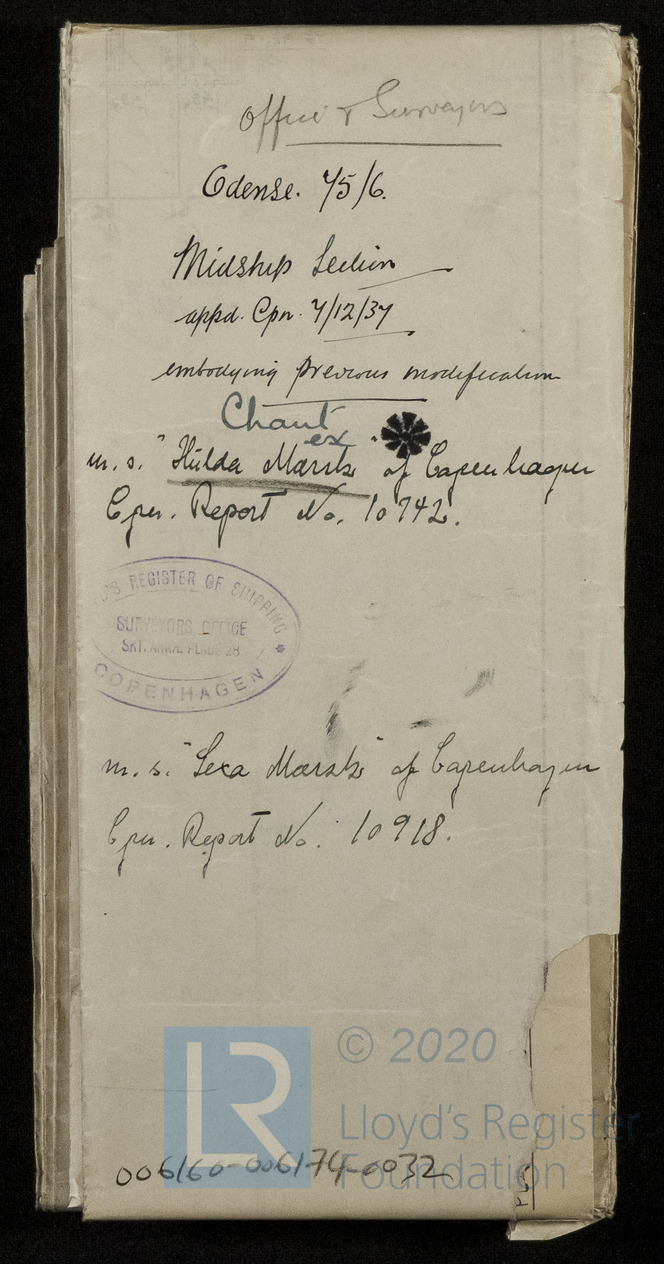 Office & Surveyors
Odense. 75/6.
Midship Section
appd. Cpn. 7/12/37
embodying previous modification
Chant
ex
m.s. "Hulda Mærsk" of Copenhagen
Cpn. Report No. 10742.
'S REGISTER OF SHIPPING
SURVEYORS OFFICE
SKT. ANNÆ PLADS 28
COPENHAGEN
m.s. "Lexa Mærsk" of Copenhagen
Cpn. Report No. 10918.
LR
© 2020
Lloyd's Register
Foundation
006160-006174-0032